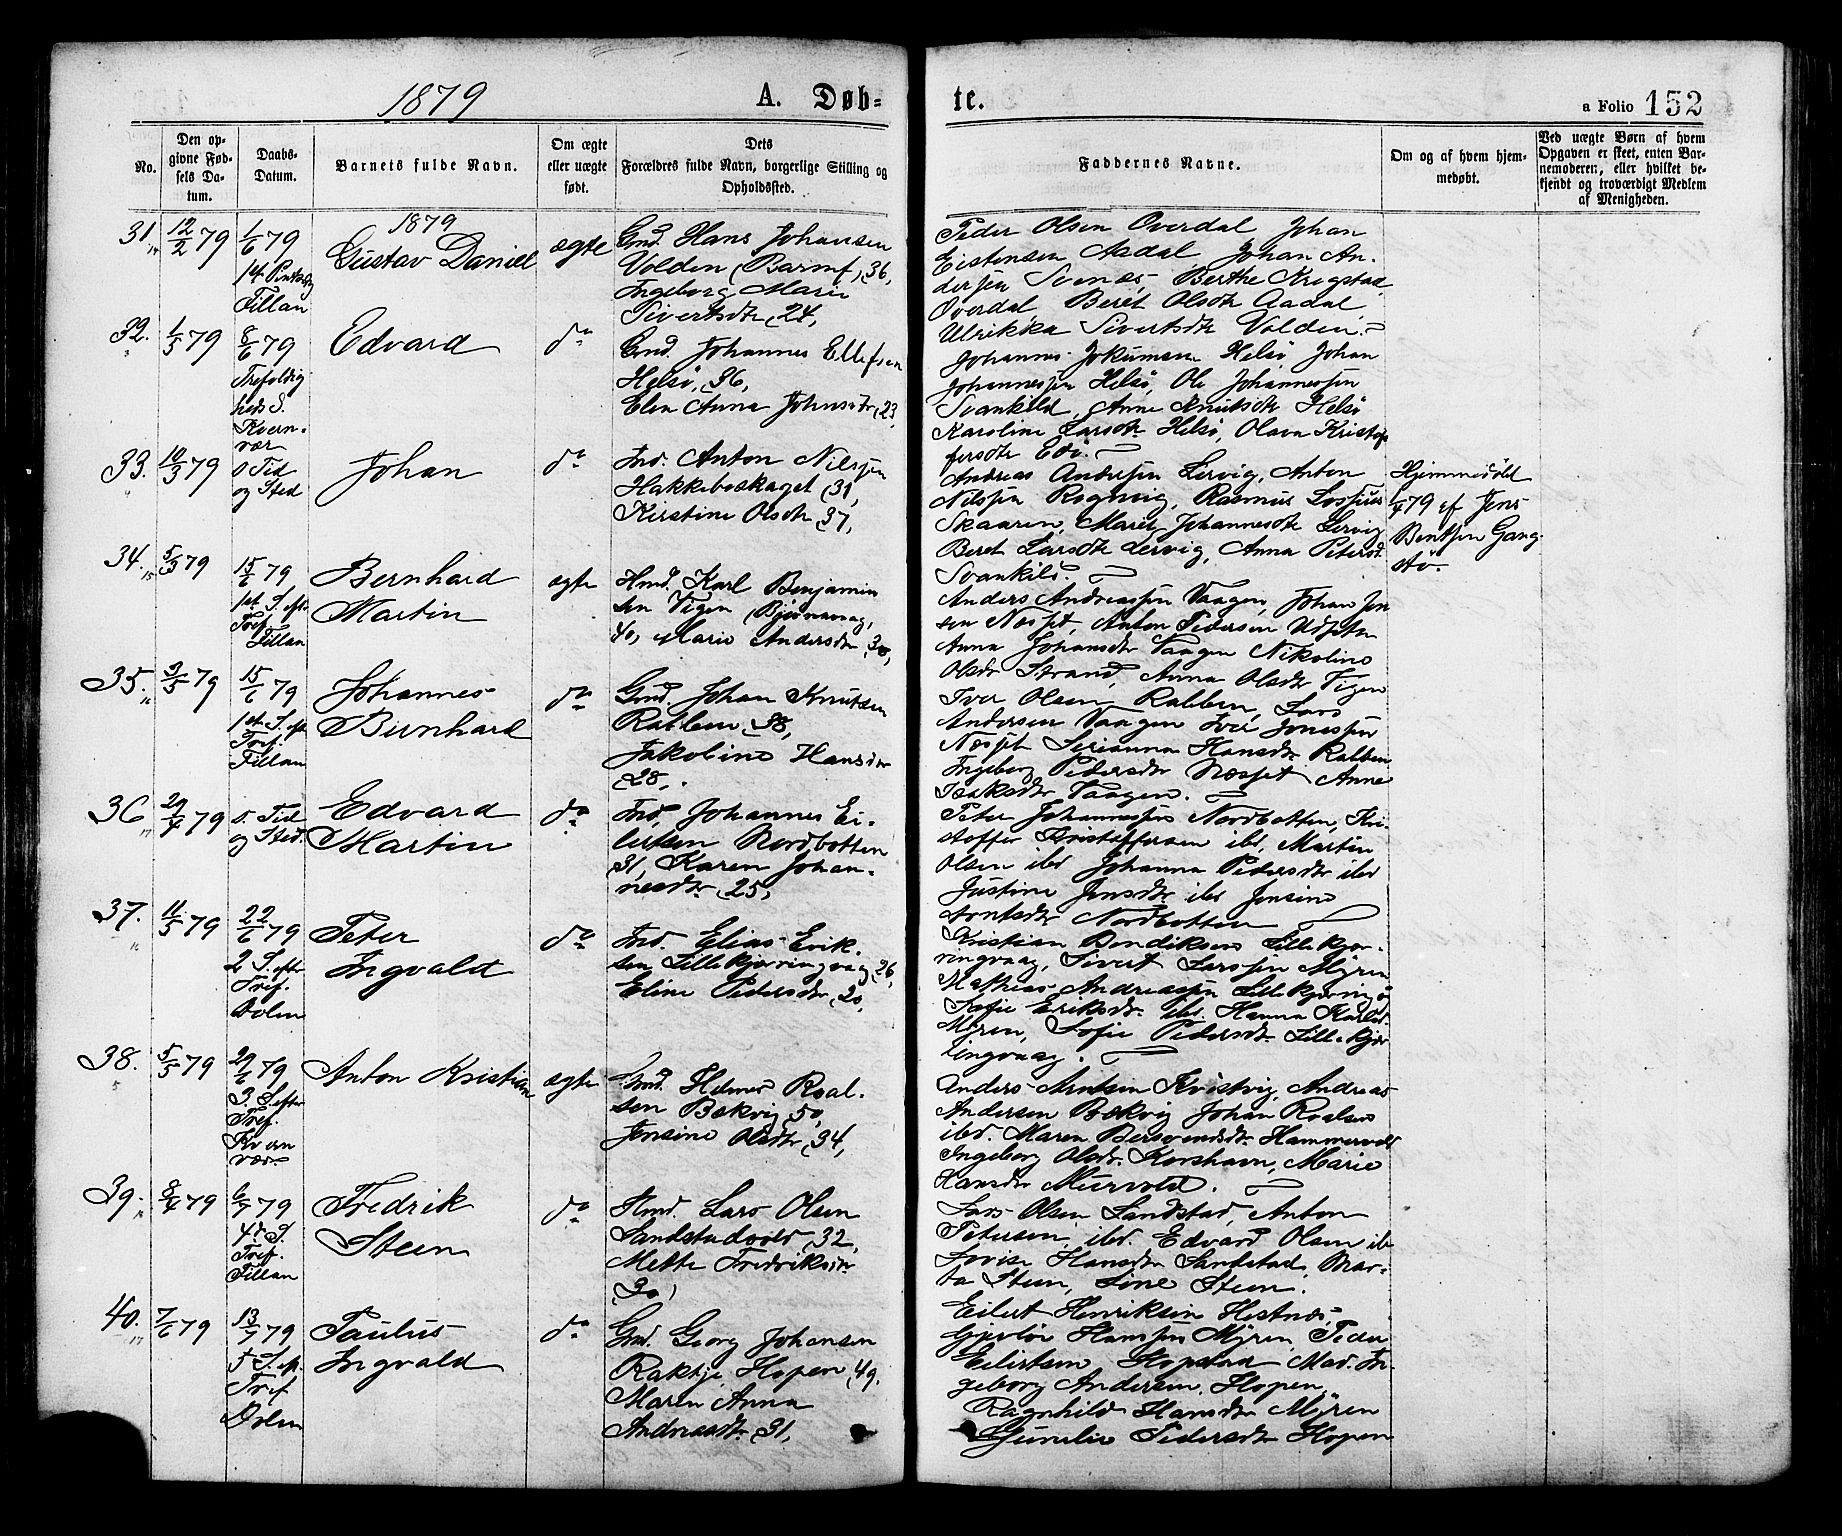 1879
A. Døb-
te.
a Folio 152
No.
Den op-
givne Fød-
sels Da-
tum.
Daabs-
Datum.
Barnets fulde Navn.
Om ægte
eller uægte
født.
Dets
Forældres fulde Navn, borgerlige Stilling og
Opholdssted.
Faddernes Navne.
Om og af hvem hjem-
medøbt.
Ved uægte Børn af hvem
Opgaven er skeet, enten Bar-
nemoderen, eller hvilket be-
kjendt og troværdigt Medlem
af Menigheden.
31.
12/2 79
1/6 79
1st Pintsedg
Fillan
1879
Gustav Daniel
ægte
Gmd. Hans Johansen
Volden (Barmf) (36,
Ingeborg Marie
Sivertsdtr (24,
Peder Olsen Overdal Johan
Eistensen Aadal, Johan An-
dersen Svenæs, Berthe Krogstad
Overdal, Beret Olsdtr Aadal,
Ulrikka Sivertsdtr Volden.
32.
1/5 79
8/6 79
Trefoldig
heds S.
Kvern-
vær
Edvard
do
Gmd. Johannes Ellefsen
Helsø, 36,
Elen Anna Johnsdtr (23,
Johannes Jokumsen Helsø Johan
Johannessen Helsø, Ole Johannessen
Svankild, Anne Knutsdtr Helsø
Karoline Larsdtr Helsø, Olava Kristof
fersdtr Edø.
33.
10/3 79
s Tid
og Sted
Johan
do
Ind. Anton Nilssen
Hakkeboskaget (31,
Kirstine Olsdtr (37,
Andreas Andersen Lervig, Anton
Nilssen Rognvig, Rasmus Lossius
Skaaren, Maret Johannesdtr Lervig
Beret Larsdtr Lervig, Anna Petersd.
Svankild.
Hjemmedøbt
79 af Jens
Bentsen Gang-
stø.
34.
5/3 79
15/6 79
1st S. eftr
Tref.
Fillan
Bernhard
Martin
ægte
Hmd. Karl Benjamin
sen Vigen (Bjørnevag,
40, Marie Andersdtr (30,
Anders Andreassen Vaagen, Johan Jen
sen Næsset, Anton Pedersen Udseter
Anna Johansdtr Vaagen Nikoline
Olsdtr Strand, Anna Olsdtr Vigen
35.
3/5 79
15/6 79
1st S. eft
Tref.
Fillan
Johannes
Bernhard
do
Gmd. Johan Knutsen
Rabben (38,
Jakobine Hansdtr
(28,.
Iver Olsen Rabben, Lars
Andersen Vaagen Iver Jonessen
Næsset Serianna Hansdtr Rabben
Ingeborg Pedersdtr Næsset Anne
Isaksdtr Vaagen.
36
29/4 79
s. Tid
og Sted.
Edvard
Martin
do
Ind, Johannes Ei-
lertsen Nordbotten
31, Karen Johan-
nesdtr (25,
Peter Johannessen Nordbotten, Kri-
stoffer Kristoffersen ibd, Martin
Olsen ibd Johanna Pedersdtr ibd
Justine Jensdtr ibd Jensine
Arntsdtr Nordbotten
37.
11/5 79
22/6 79
2 S. eftr
Tref.
Dolm
Peter
Ingvald
do
Ind. Elias Erik-
sen Lillekjerringvag (26,
Eline Pedersdtr (20,
Kristian Bendiksen Lillekjer-
ringvaag, Sivert Larssen Myren
Mathias Andreassen Lillekjerring
Sofie Eriksdtr ibd. Hanna Karlsd.
Myren, Sofie Pedersdtr Lillekjer
ringvaag.
38.
5/5 79
29/6 79
3. S. efter
Tref.
Kvern
vær
Anton Kristian
ægte
Gmd. Helmer Roal-
sen Bækvig (50,
Jensine Olsdtr (34,
Anders Arntsen Kvistvig, Andreas
Andersen Bækvig Johan Roalsen
ibd. Maren Bersvendsdtr Hammervold
Ingeborg Olsdtr Korshavn, Marie
Hansdtr Miervold.
39.
8/4 79
6/7 79
4de S.
Tref.
Fillan
Fredrik
Steen
do
Hmd. Lars Olsen
Sandstadvold (32,
Mette Fredriksdtr
(30)
Lars Olsen Sandstad, Anton
Petersen, ibd. Edvard Olsen ib
Lovise Hansdtr Sandstad, Mar-
ta Steen, Line Steen.
40.
7/6 79
13/7 79
5 S. eft
Tref
Dolm
Paulus
Ingvald
do
Gmd. Georg Johansen
Raktje, Hopen (49.
Maren Anna
Andreasdtr (31,
Eilert Henriksen Hestnæs,
Gjertør Hanssen Myren, Peder
Eilertsen Hopstad Mad. In-
geborg Andersen, Hopen,
Ragnhild Hansdtr Myren
Gurulie Pedersdtr Hopen